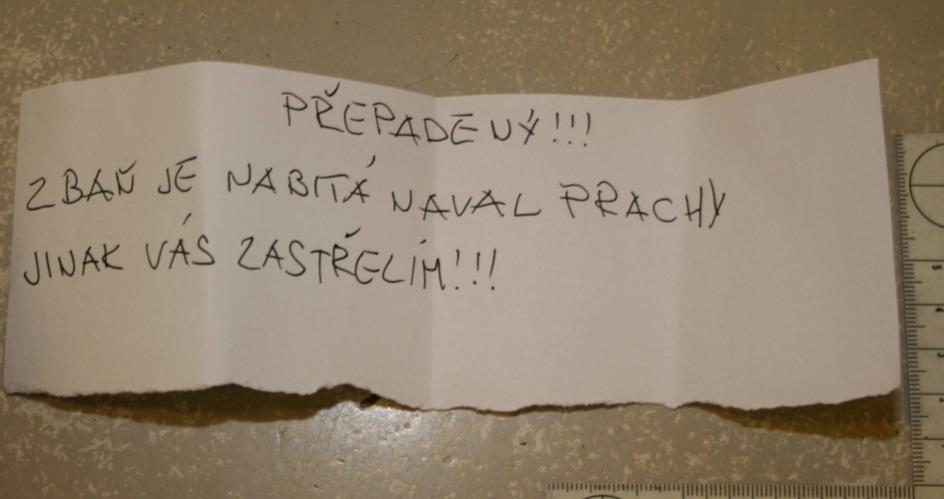 PŘEPADENÝ!!!
ZBAŇ JE NABITÁ NAVAL PRACHY
JINAK VÁS ZASTŘELÍM!!!